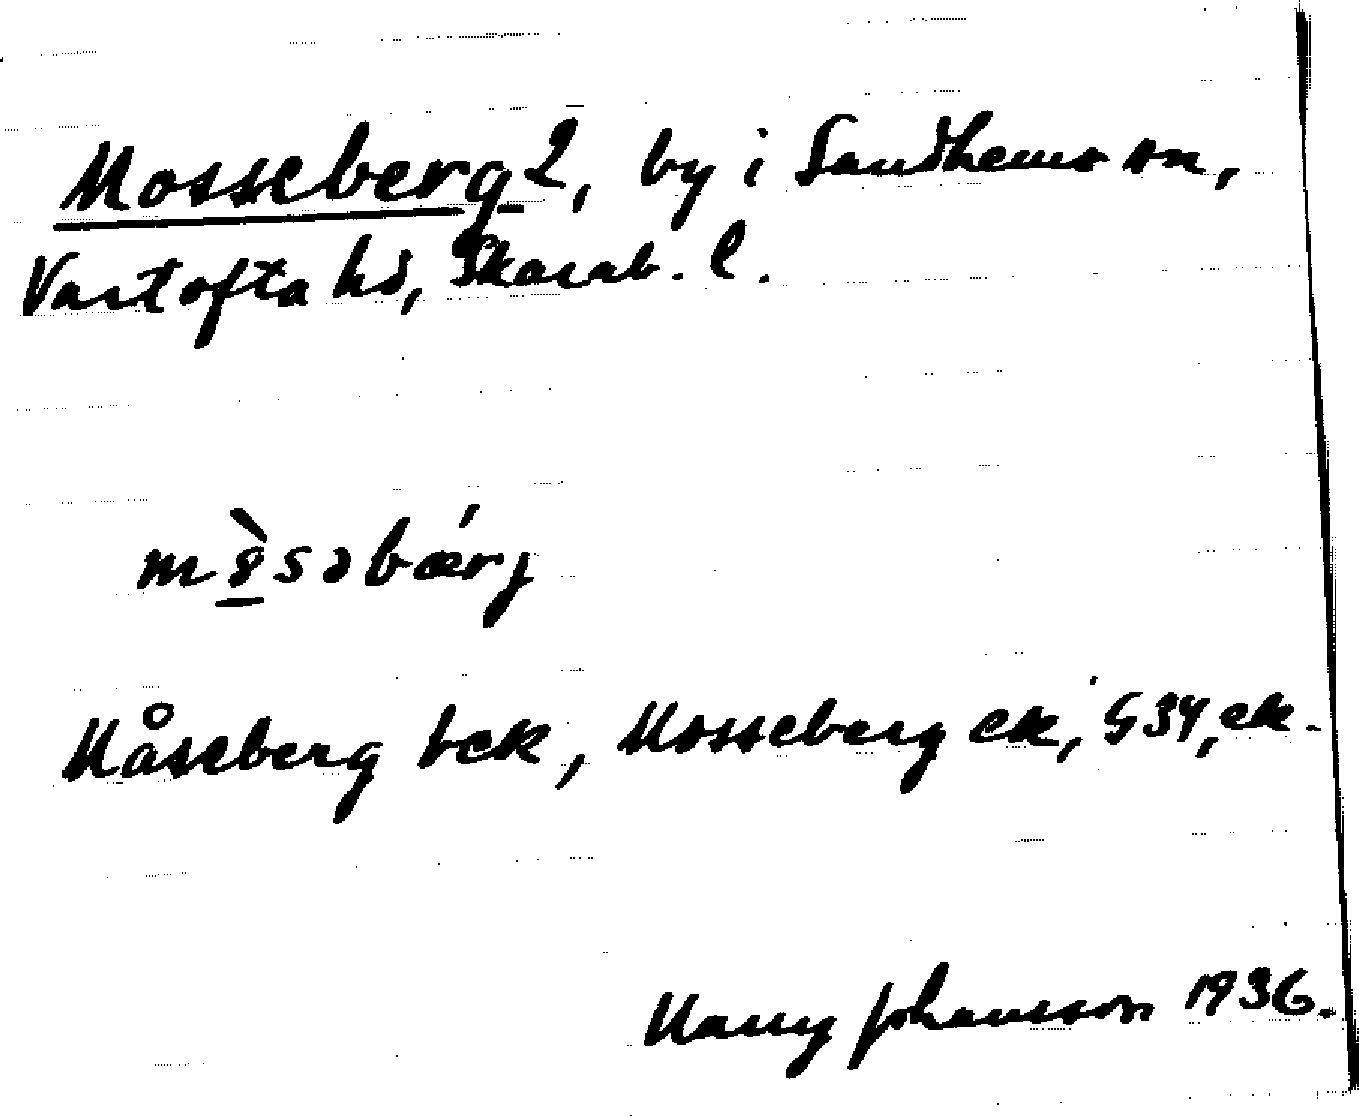 Mosseberg 2, by i Sandhems sn,
Vartofta hd, Skarab. l.
m8̱̀səbærj́
Måseberg bek, Mosseberg ek, G34, ek.
Harry Johansson 1936.